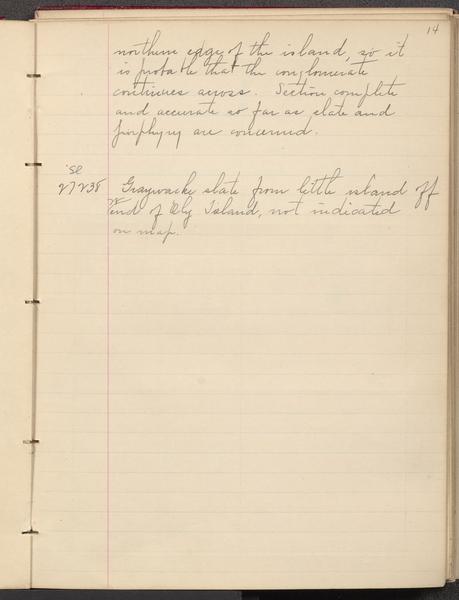 14
northern edge of the island, so it
is probable that the conglomerate
continues across. Section complete
and accurate so far as slate and
porphyry are concerned.
'Sl
27238 Graywacke slate from little island off
W end of Ely Island, not indicated
on map.